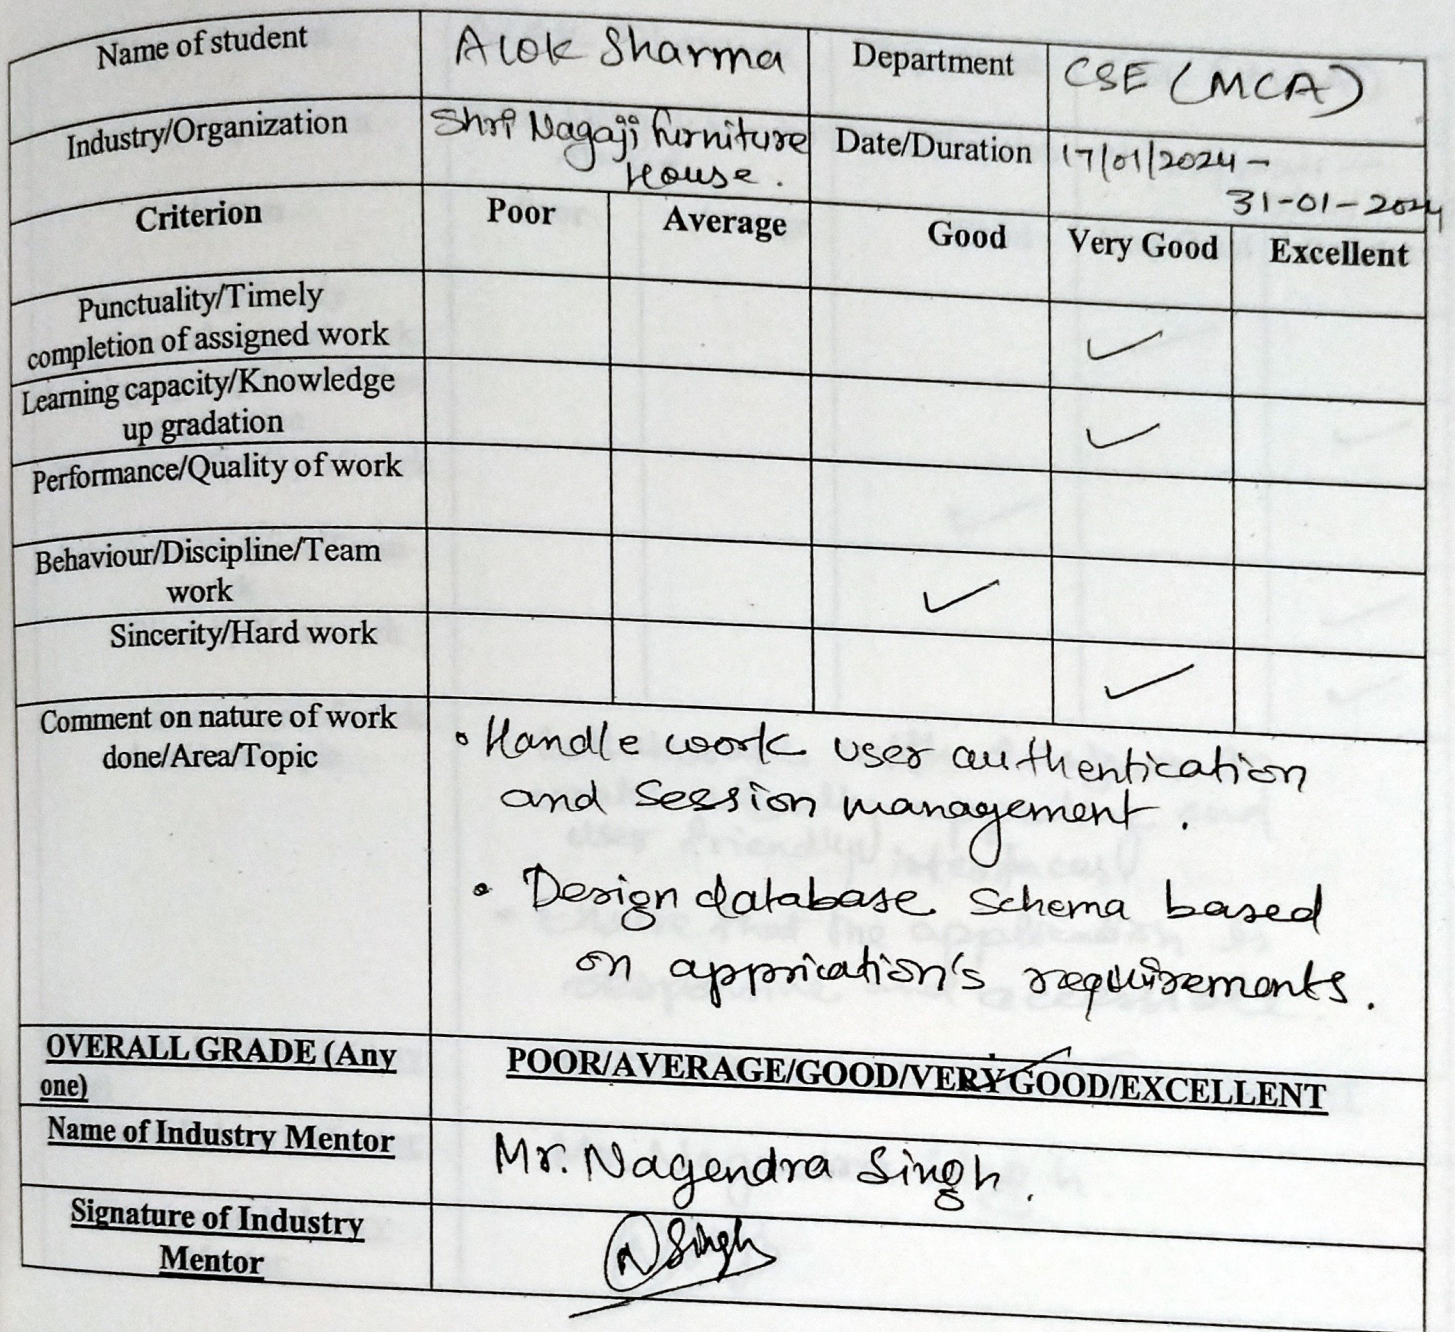 Name of student Alok Sharma Department CSE (MCA)
Industry/Organization Shri Nagaji furniture House. Date/Duration 17/01/2024 - 31-01-2024
Criterion Poor Average Good Very Good Excellent
Punctuality/Timely
completion of assigned work ✓
Learning capacity/Knowledge
up gradation ✓
Performance/Quality of work
Behaviour/Discipline/Team
work ✓
Sincerity/Hard work ✓
Comment on nature of work
done/Area/Topic
• Handle work user authentication
and Session management.
• Design database schema based
on apprication's requirements.
OVERALL GRADE (Any
one)
POOR/AVERAGE/GOOD/VERY GOOD/EXCELLENT
Name of Industry Mentor Mr. Nagendra Singh.
Signature of Industry
Mentor
N Singh